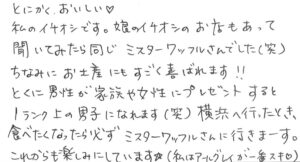 とにかく、おいしい♡
私のイチオシです。娘のイチオシのお店もあって
聞いてみたら同じ ミスターワッフルさんでした(笑)
ちなみにお土産にもすごく喜ばれます!!
とくに男性が家族や女性にプレゼントすると
1ランク上の男子になれます(笑) 横浜へ行ったとき、
食べたくなったら必ずミスターワッフルさんに行きまーす。
これからも楽しみにしています☆(私はアップルが一番スキ♡)